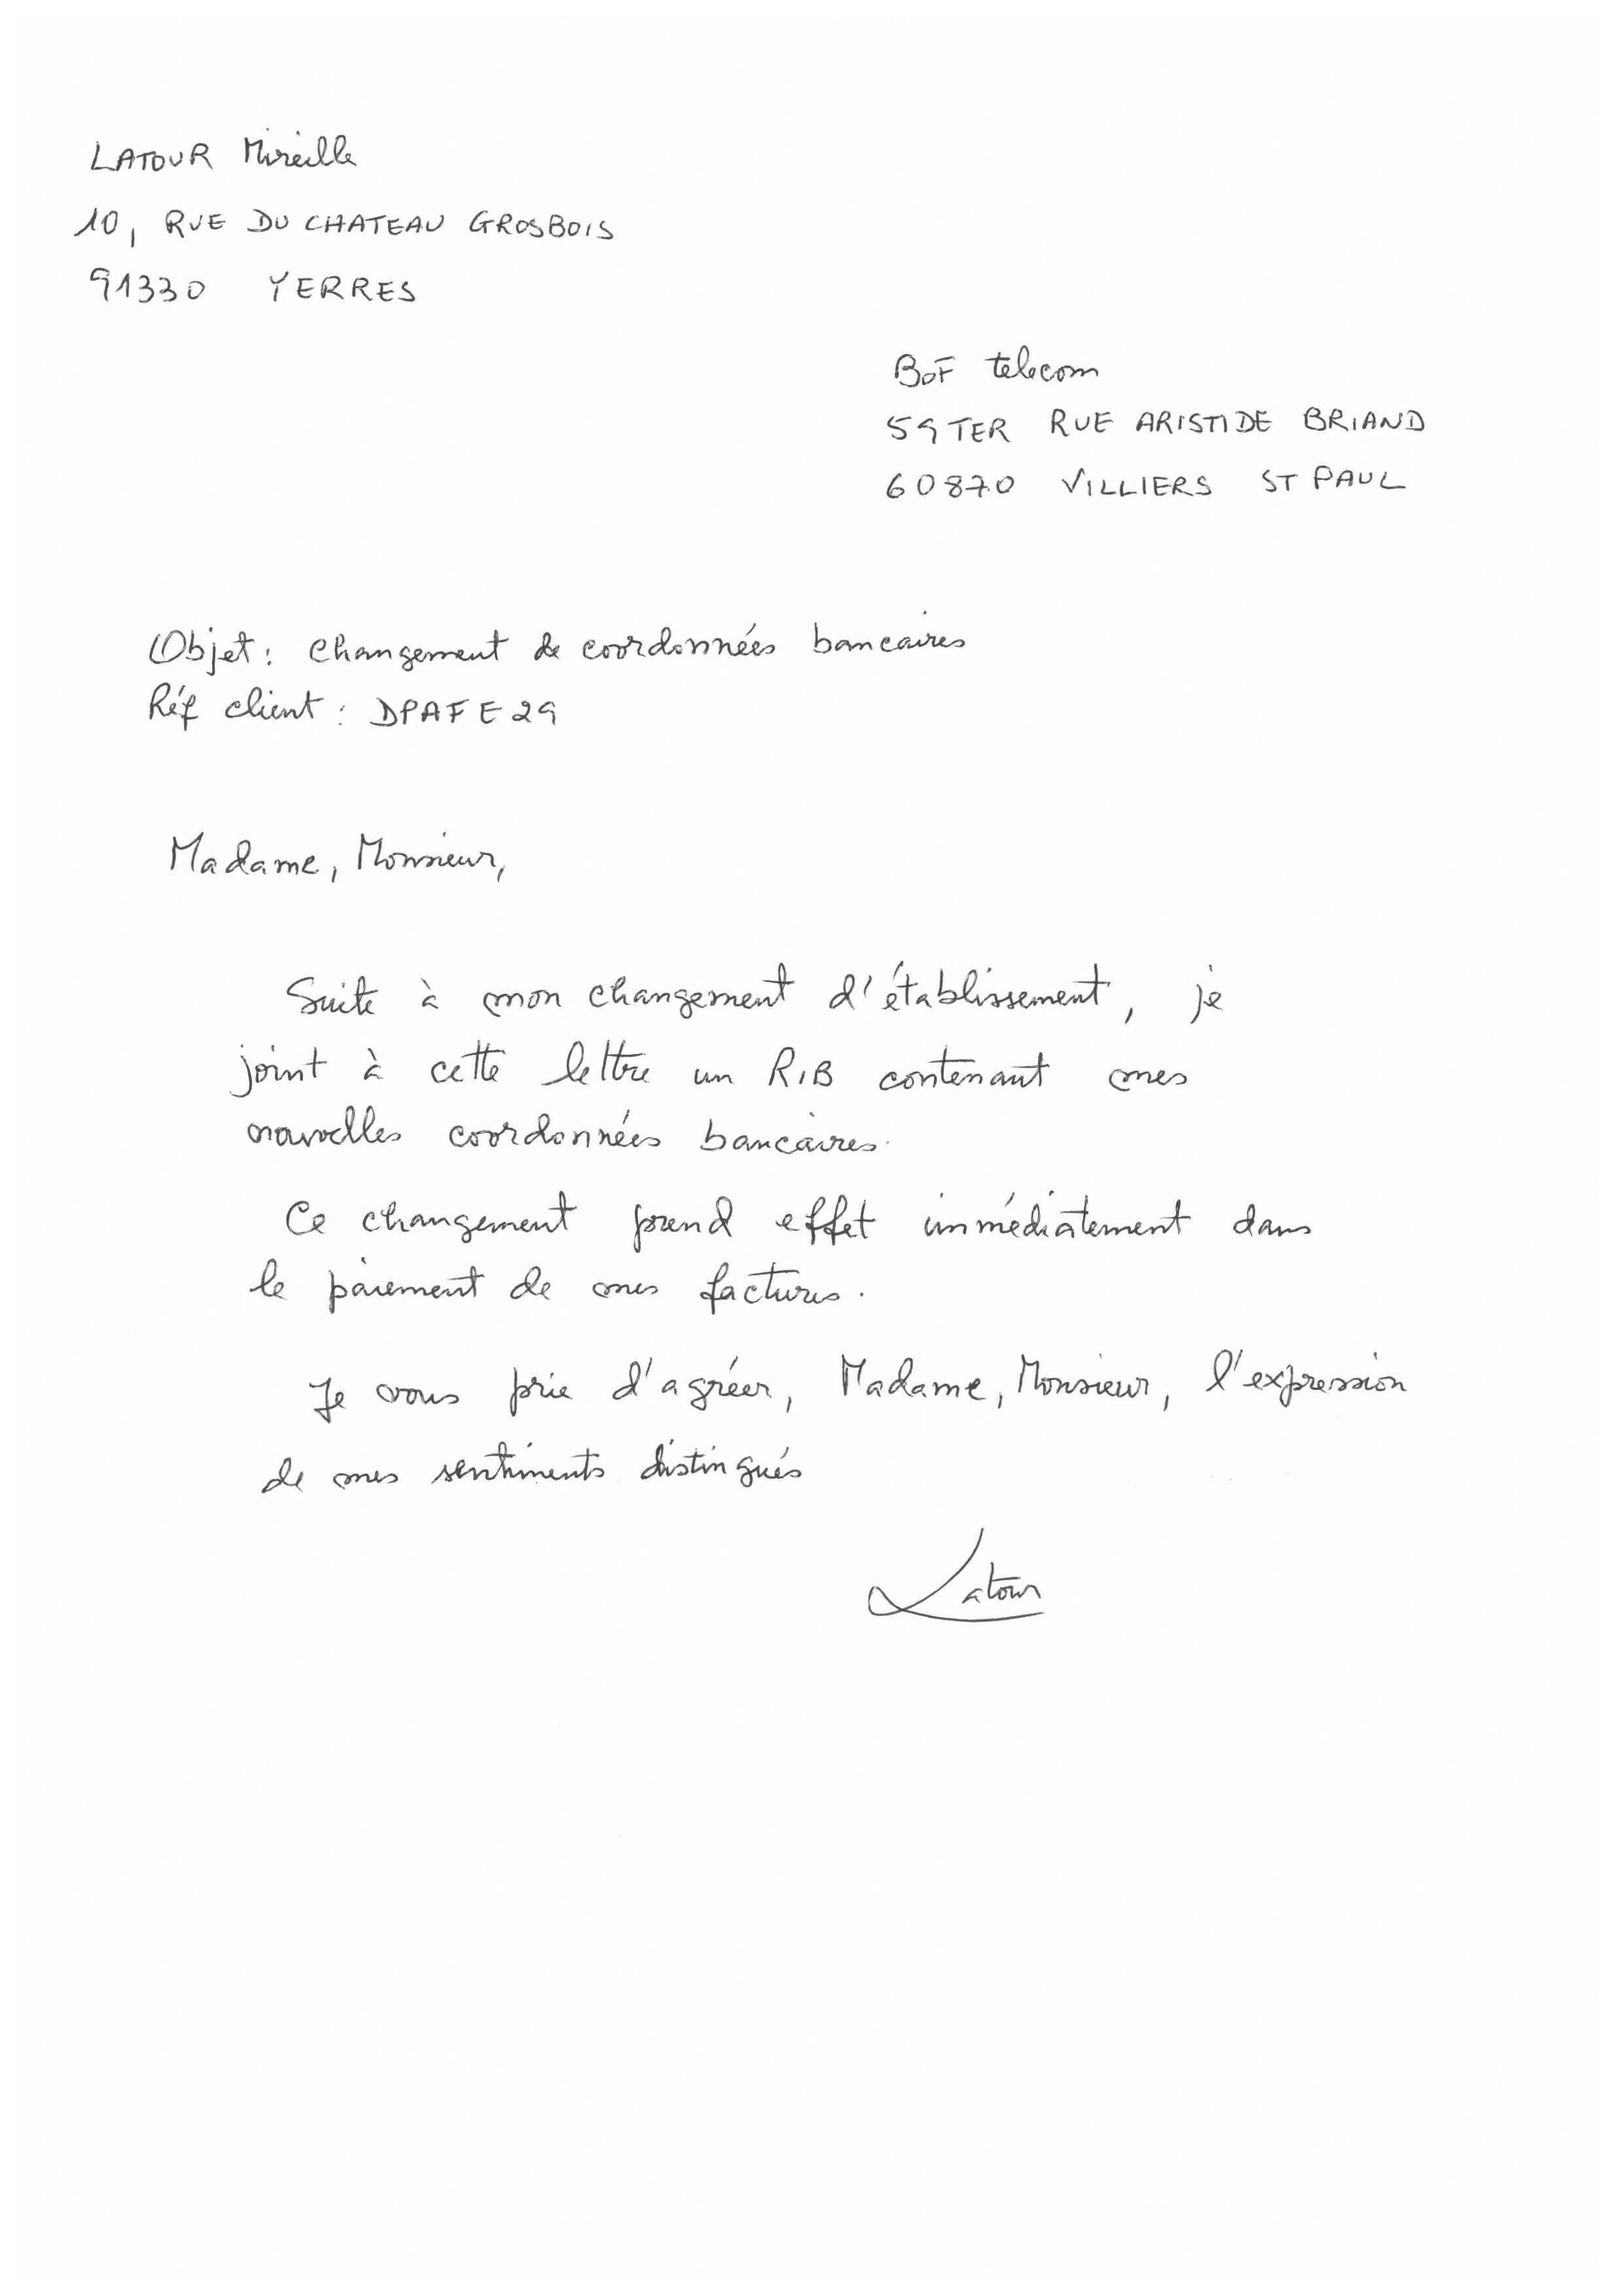 LATOUR Mireille
10, RUE DU CHATEAU GROSBOIS
91330 YERRES
BOF telecom
59TER RUE ARISTIDE BRIAND
60870 VILLIERS ST PAUL
Objet : Changement de coordonnées bancaires
Réf client : DPAFE29
Madame, Monsieur,
Suite à mon changement d'établissement, je
joint à cette lettre un RIB contenant mes
nouvelles coordonnées bancaires.
Ce changement prend effet immédiatement dans
le paiement de mes factures.
Je vous prie d'agréer, Madame, Monsieur, l'expression
de mes sentiments distingués
Latour